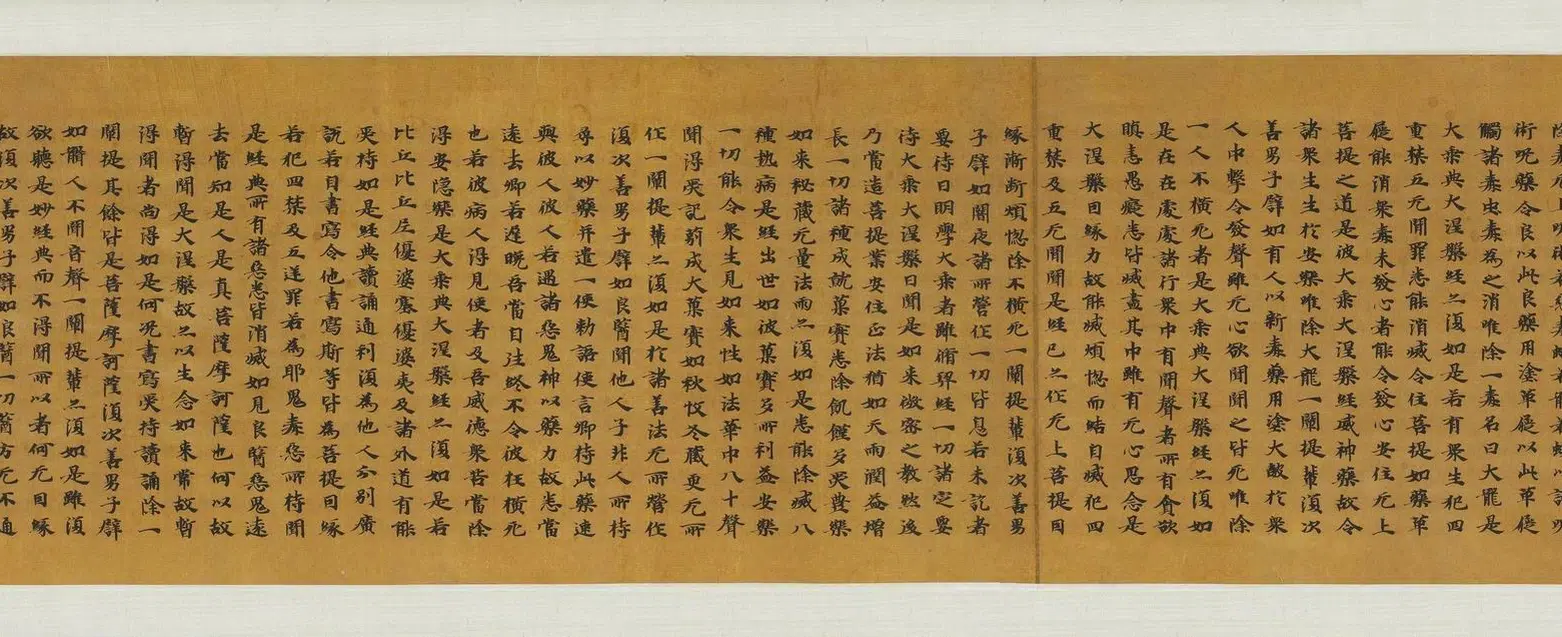 術呪藥令良以此良藥用塗革屣以此革屣
觸諸毒虫毒為之消唯除一毒名曰大龍是
大乘典大涅槃經亦復如是若有眾生犯四
重禁五无間罪悉能消滅令住菩提如藥革
屣能消眾毒未發心者能令發心安住无上
菩提之道是彼大乘大涅槃經威神藥故令
諸眾生生於安樂唯除大龍一闡提輩復次
善男子譬如有人以新毒藥用塗大皷於眾
人中擊令發聲雖无心欲聞聞之皆死唯除
一人不橫死者是大乘典大涅槃經亦復如
是在在處處諸行眾中有聞聲者所有貪欲
瞋恚愚癡悉皆滅盡其中雖有无心思念是
大涅槃因緣力故能滅煩惚而結自滅犯四
重禁及五无間聞是經已亦作无上菩提因
緣漸斷煩惚除不橫死一闡提輩復次善男
子譬如闇夜諸所營作一切皆息若未訖者
要待日明學大乘者雖脩契經一切諸定要
待大乘大涅槃日聞是如來微密之教然後
乃當造菩提業安住正法猶如天雨潤益增
長一切諸種成就菓實悉除飢饉多受豐樂
如來秘藏无量法雨亦復如是悉能除滅八
種熱病是經出世如彼菓實多所利益安樂
一切能令眾生見如來性如法華中八十聲
聞得受記莂成大菓實如秋收冬藏更无所
作一闡提輩亦復如是於諸善法无所營作
復次善男子譬如良醫聞他人子非人所持
尋以妙藥并遣一使勑語使言卿持此藥速
與彼人彼人若遇諸惡鬼神以藥力故悉當
遠去卿若遲晚吾當自往終不令彼枉橫死
也若彼病人得見使者及吾威德眾苦當除
得安隱樂是大乘典大涅槃經亦復如是若
比丘比丘尼優婆塞優婆夷及諸外道有能
受持如是經典讀誦通利復為他人分別廣
說若自書寫令他書寫斯等皆為菩提因緣
若犯四禁及五逆罪若為耶鬼毒惡所持聞
是經典所有諸惡悉皆消滅如見良醫惡鬼遠
去當知是人是真菩薩摩訶薩也何以故
暫得聞是大涅槃故亦以生念如來常故暫
得聞者尚得如是何況書寫受持讀誦除一
闡提其餘皆是菩薩摩訶薩復次善男子譬
如聾人不聞音聲一闡提輩亦復如是雖復
欲聽是妙經典而不得聞所以者何无因緣
故復次善男子譬如良醫一切醫方无不通